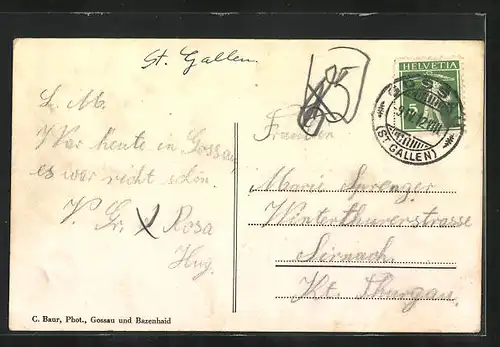 St. Gallen.
HELVETIA
5
(ST. GALLEN)
L. M.
War heute in Gossau,
es war recht schön.
V. Gr. Rosa
Hug.
Marie Sprenger
Winterthurerstrasse
Sirnach.
Kt. Thurgau.
C. Baur, Phot., Gossau und Bazenhaid